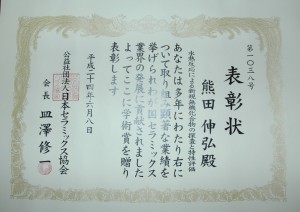 第一〇三八号
表彰状
水熱反応による新規無機化合物の探査と特性評価
熊田伸弘殿
あなたは多年にわたり右に
ついて取り組み顕著な業績を
挙げられわが国セラミックス
業界の発展に貢献されました
よってここに学術賞を贈り
表彰します
平成二十四年六月八日
公益社団法人日本セラミックス協会
会長 皿澤修一